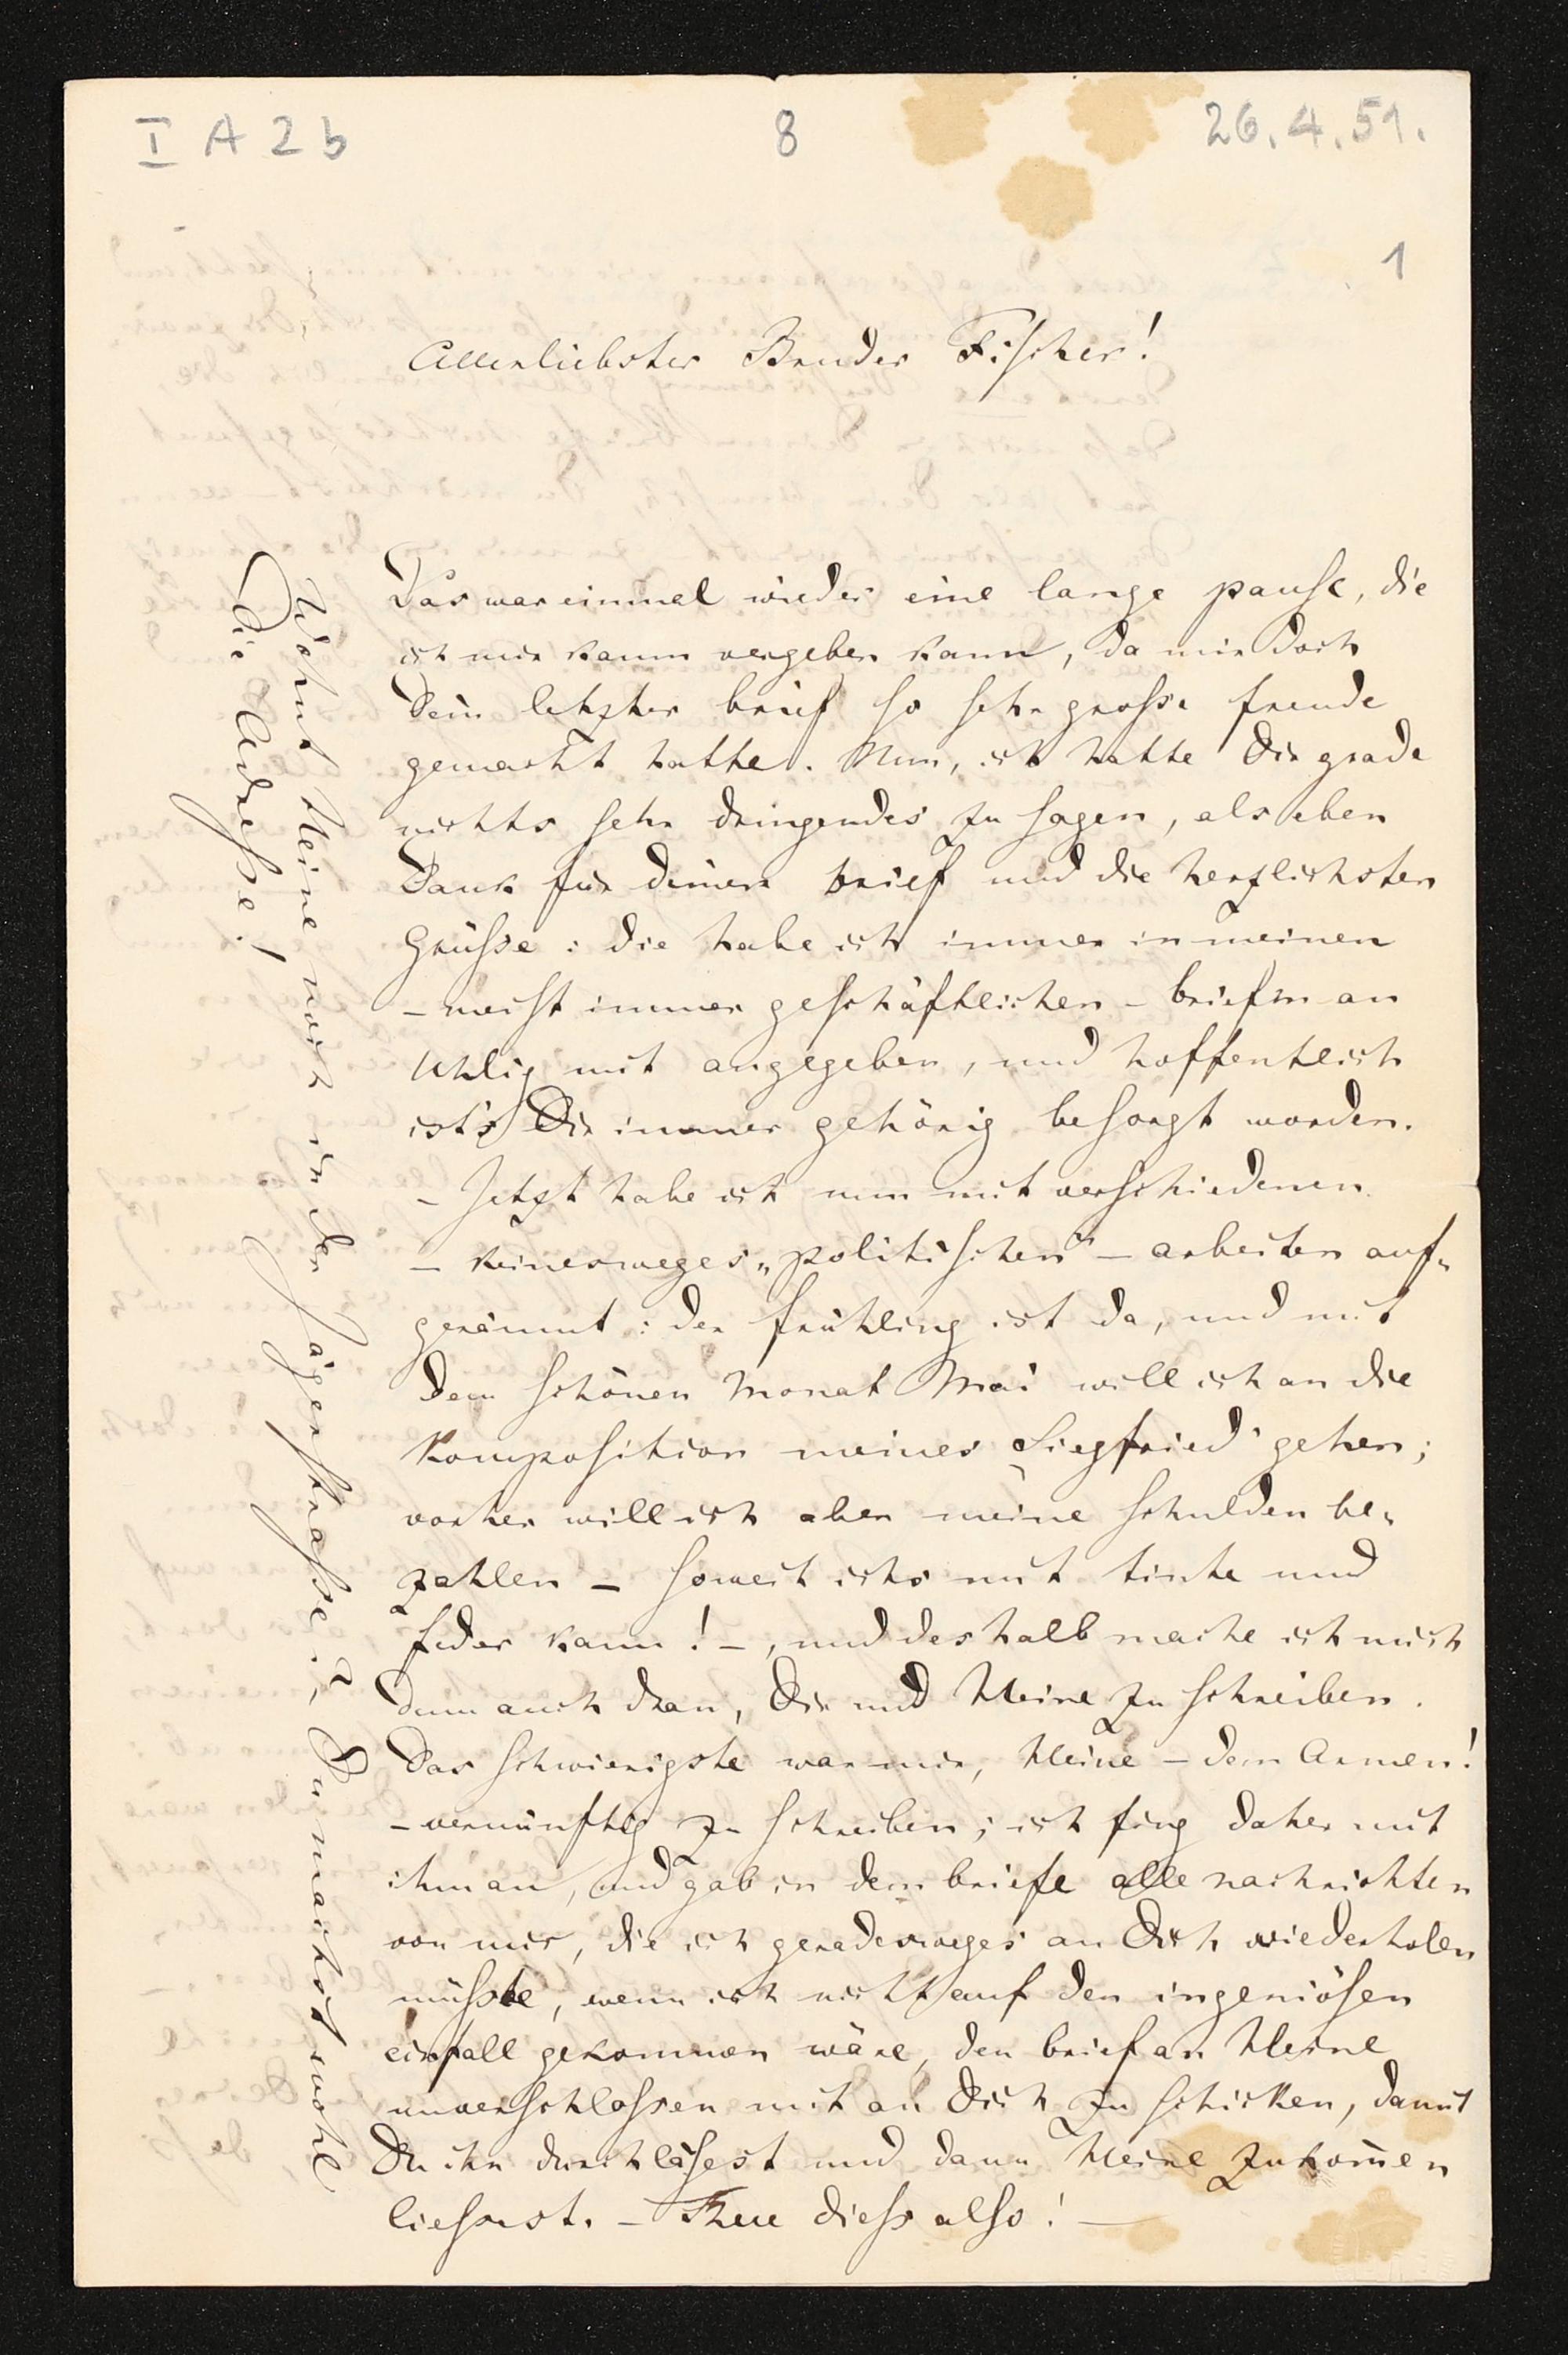 I A 2 b
8
26.4.51.
1
Allerliebster Bruder Fischer!
Das war einmal wieder eine lange pause, die
ich mir kaum vergeben kann, da mir doch
Dein letzter brief so sehr grosse freude
gemacht hatte. Nun, ich hatte Dir grade
nichts sehr dringendes zu sagen, als eben
Dank für deinen brief und die herzlichsten
Grüsse: die habe ich immer in meinen
– meist immer geschäftlichen – briefen an
Uhlig mit angegeben, und hoffentlich
ist's Dir immer gehörig besorgt worden.
– Jetzt habe ich nun mit verschiedenen
– keinesweges „politischen" – arbeiten auf-
geräumt: der frühling ist da, und mit
dem schönen Monat Mai will ich an die
Komposition meines Siegfried gehen;
vorher will ich aber meine schulden be-
zahlen – soweit ichs mit tinte und
feder kann! –, und deshalb mache ich mich
denn auch dran, Dir und Heine zu schreiben.
Das schwierigste war mir, Heine – dem Armen!
– vernünftig zu schreiben; ich fing daher mit
ihm an, und gab in dem briefe alle nachrichten
von mir, die ich geradesweges an Dich wiederholen
müsste, wenn ich nicht auf den ingeniösen
einfall gekommen wäre, den brief an Heine
unverschlossen mit an Dich zu schicken, damit
Du ihn durchläsest und dann Heine zukom̄en
liessest. – Thue diess also! –
Wohnt Heine noch in der Jägerstrasse?, Du machst wohl
die Adresse!